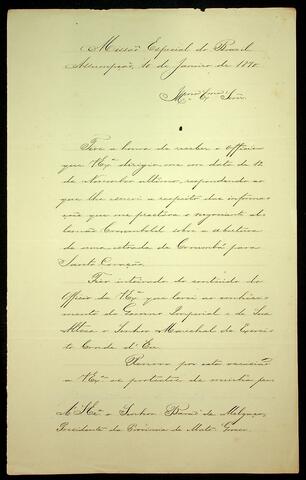 Missão Especial do Brazil
Assumpção, 10 de Janeiro de 1870
Tive a honra de receber o officio
que V Exª dirigio-me com data de 12
de Novembro ultimo, respondendo ao
que lhe escrevi a respeito das informa
ções que me prestára o negociante al
lemão sobre a abertura
de uma estrada de Corumbá para
Santo Coração.
Fico inteirado do conteudo do
Officio de V Exª que levei ao conheci
mento do Governo Imperial e de Sua
Alteza o Senhor Marechal de Exerci
to Conde d'Eu.
Renovo por esta occasião
a V Exª os protestos da minha per
A S. Exª o Senhor Barão de Melgaço,
Presidente da Provincia de Mato Grosso